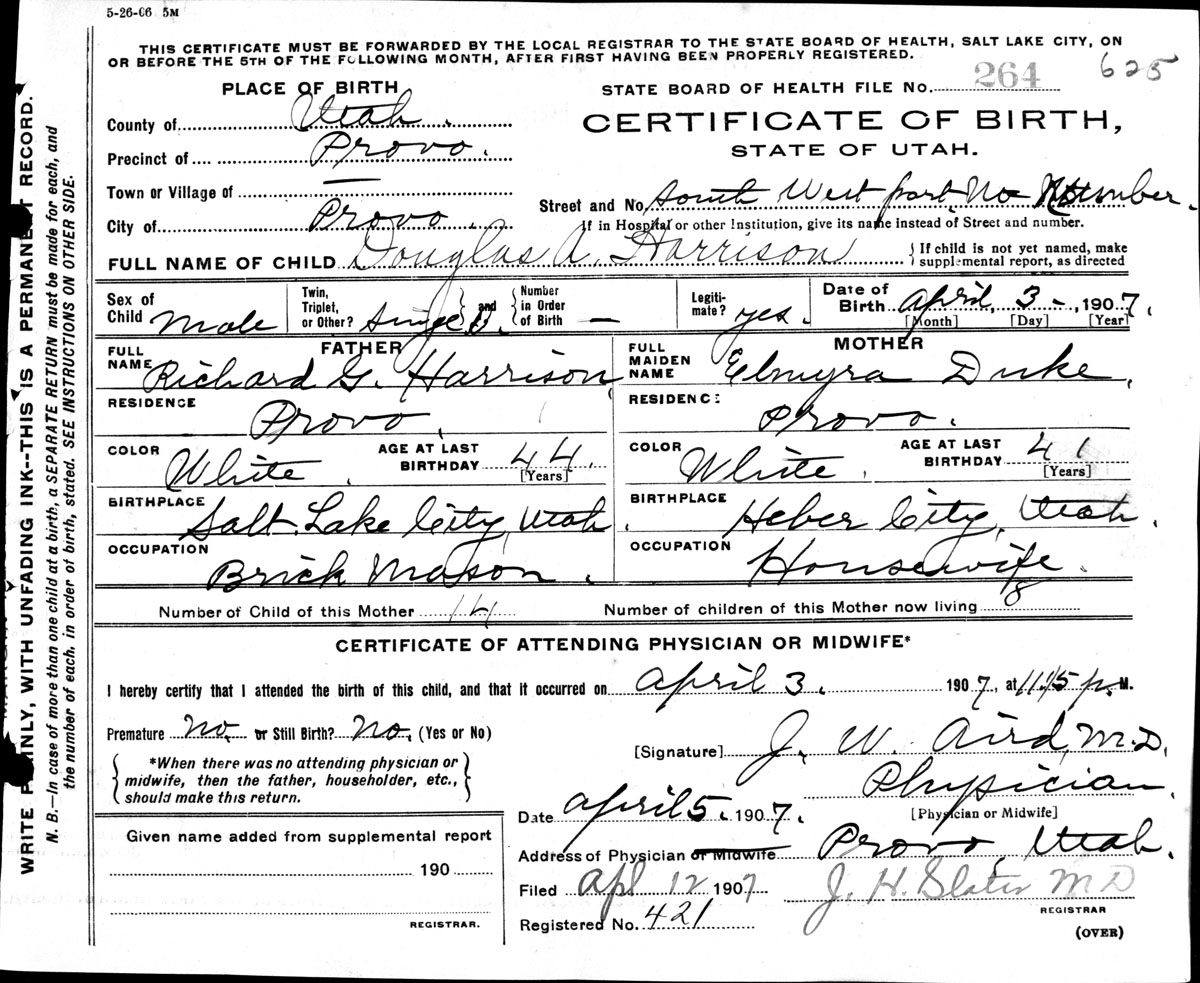 5-26-06 5M
THIS CERTIFICATE MUST BE FORWARDED BY THE LOCAL REGISTRAR TO THE STATE BOARD OF HEALTH, SALT LAKE CITY, ON
OR BEFORE THE 5TH OF THE FOLLOWING MONTH, AFTER FIRST HAVING BEEN PROPERLY REGISTERED.
625
PLACE OF BIRTH
STATE BOARD OF HEALTH FILE NO. 264
County of Utah.
CERTIFICATE OF BIRTH,
STATE OF UTAH.
Precinct of Provo.
Town or Village of —
Street and No. South West part No Number.
City of Provo.
If in Hospital or other Institution, give its name instead of Street and number.
FULL NAME OF CHILD Douglas A. Harrison
{If child is not yet named, make
supplemental report, as directed
Sex of Child Male
Twin, Triplet, or Other? Single } and { Number in Order of Birth —
Legiti-mate? yes.
Date of Birth April, 3 -, 1907.
[Month] [Day] [Year]
FATHER
FULL NAME Richard G. Harrison
RESIDENCE Provo.
COLOR White. AGE AT LAST BIRTHDAY 44. [Years]
BIRTHPLACE Salt Lake City, Utah.
OCCUPATION Brick Mason.
MOTHER
FULL MAIDEN NAME Elmyra Duke,
RESIDENCE Provo.
COLOR White. AGE AT LAST BIRTHDAY 41 [Years]
BIRTHPLACE Heber City, Utah.
OCCUPATION Housewife.
Number of Child of this Mother 14 Number of children of this Mother now living 8
CERTIFICATE OF ATTENDING PHYSICIAN OR MIDWIFE*
I hereby certify that I attended the birth of this child, and that it occurred on April 3. 1907, at 11:15 p. M.
Premature No. or Still Birth? No. (Yes or No)
[Signature] J. W. Aird, M.D.
{*When there was no attending physician or
midwife, then the father, householder, etc.,
should make this return.}
Physician.
[Physician or Midwife]
Date April 5. 1907.
Given name added from supplemental report
190
REGISTRAR.
Address of Physician or Midwife Provo, Utah.
Filed Apl 12 1907 J. H. Slater M D
REGISTRAR
Registered No. 421
(OVER)
WRITE PLAINLY, WITH UNFADING INK--THIS IS A PERMANENT RECORD.
N. B.—In case of more than one child at a birth, a SEPARATE RETURN must be made for each, and
the number of each, in order of birth, stated. SEE INSTRUCTIONS ON OTHER SIDE.